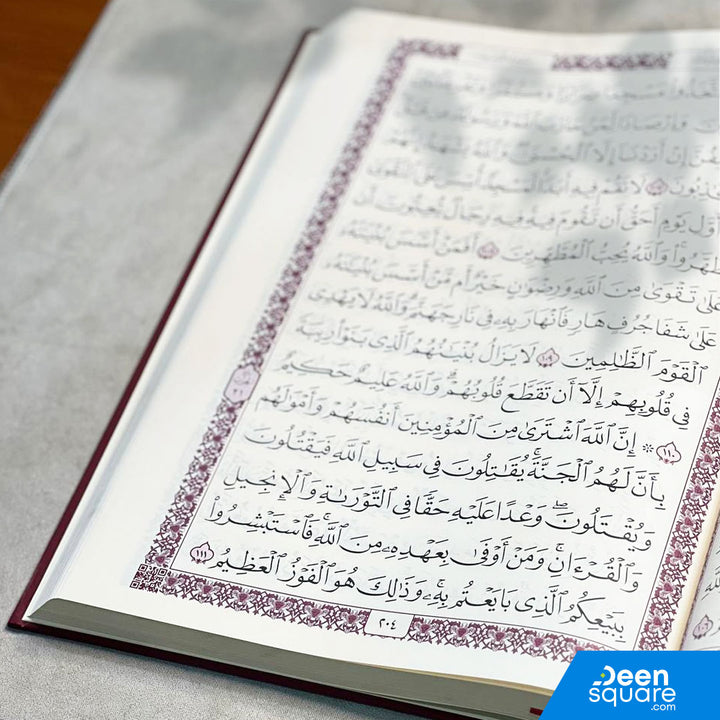 لَا تَقُمْ فِيهِ أَبَدًا لَّمَسْجِدٌ أُسِّسَ عَلَى ٱلتَّقْوَىٰ
أَوَّلِ يَوْمٍ أَحَقُّ أَن تَقُومَ فِيهِ فِيهِ رِجَالٌ يُحِبُّونَ أَن
وَٱللَّهُ يُحِبُّ ٱلْمُطَّهِّرِينَ ١٠٨ أَفَمَنْ أَسَّسَ بُنْيَٰنَهُۥ
عَلَىٰ تَقْوَىٰ مِنَ ٱللَّهِ وَرِضْوَٰنٍ خَيْرٌ أَم مَّنْ أَسَّسَ بُنْيَٰنَهُۥ
عَلَىٰ شَفَا جُرُفٍ هَارٍ فَٱنْهَارَ بِهِۦ فِي نَارِ جَهَنَّمَ وَٱللَّهُ لَا يَهْدِي
ٱلْقَوْمَ ٱلظَّٰلِمِينَ ١٠٩ لَا يَزَالُ بُنْيَٰنُهُمُ ٱلَّذِي بَنَوْاْ رِيبَةً
فِي قُلُوبِهِمْ إِلَّآ أَن تَقَطَّعَ قُلُوبُهُمْ وَٱللَّهُ عَلِيمٌ حَكِيمٌ
١١٠ ۞ إِنَّ ٱللَّهَ ٱشْتَرَىٰ مِنَ ٱلْمُؤْمِنِينَ أَنفُسَهُمْ وَأَمْوَٰلَهُم
بِأَنَّ لَهُمُ ٱلْجَنَّةَ يُقَٰتِلُونَ فِي سَبِيلِ ٱللَّهِ فَيَقْتُلُونَ
وَيُقْتَلُونَ وَعْدًا عَلَيْهِ حَقًّا فِي ٱلتَّوْرَىٰةِ وَٱلْإِنجِيلِ
وَٱلْقُرْءَانِ وَمَنْ أَوْفَىٰ بِعَهْدِهِۦ مِنَ ٱللَّهِ فَٱسْتَبْشِرُواْ
بِبَيْعِكُمُ ٱلَّذِي بَايَعْتُم بِهِۦ وَذَٰلِكَ هُوَ ٱلْفَوْزُ ٱلْعَظِيمُ ١١١
٢٠٤
Deen
square
.com